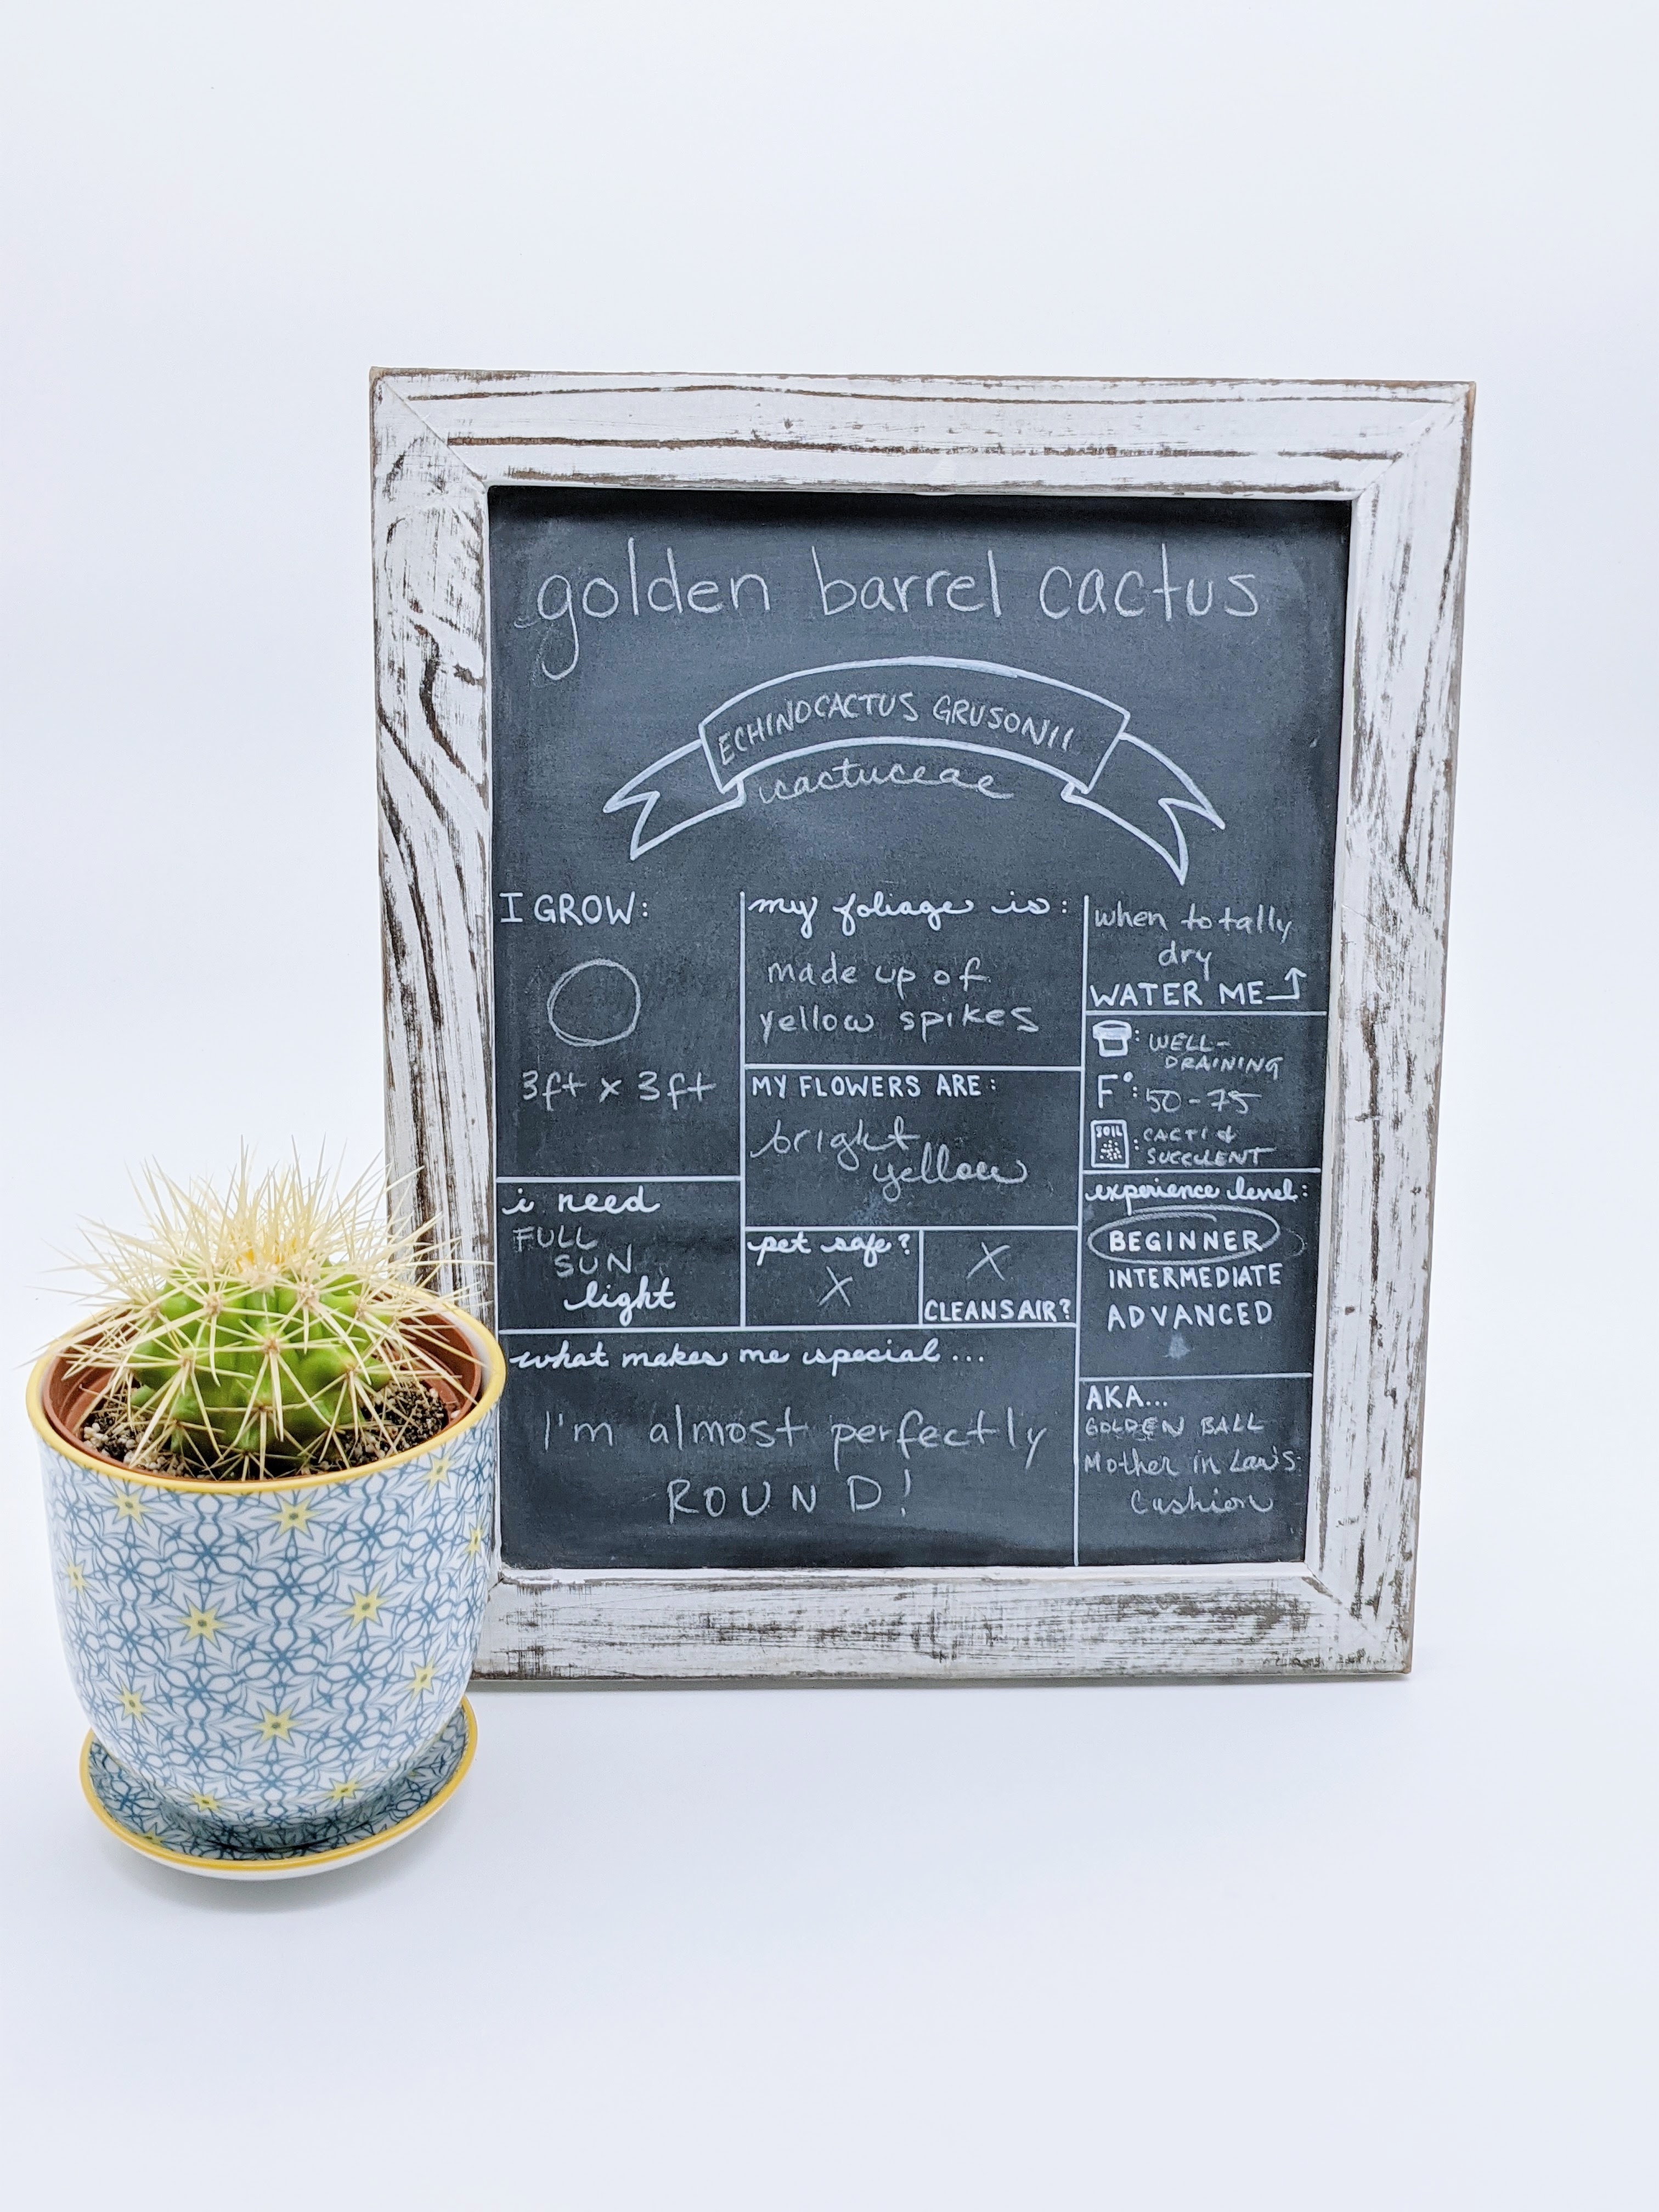 golden barrel cactus
ECHINOCACTUS GRUSONII
cactuceae
I GROW:
3ft x 3ft
i need
FULL
SUN
light
my foliage is:
made up of
yellow spikes
MY FLOWERS ARE:
bright
yellow
pet safe?
X
X
CLEANS AIR?
what makes me special...
I'm almost perfectly
ROUND!
when totally
dry
WATER ME
: WELL-
DRAINING
F°: 50-75
SOIL : CACTI &
SUCCULENT
experience level:
BEGINNER
INTERMEDIATE
ADVANCED
AKA...
GOLDEN BALL
Mother in Law's
Cushion